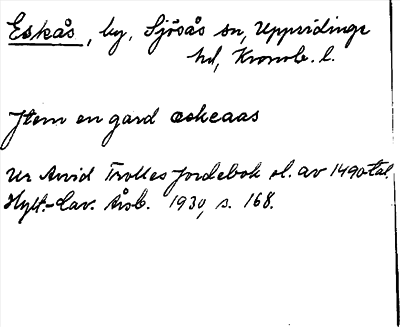 Eskås, by, Sjösås sn, Uppvidinge
hd, Kronob. l.
Item en gard æskeaas
Ur Arvid Trolles Jordebok sl. av 1490-tal.
Hylt.-Cav. Årsb. 1930, s. 168.